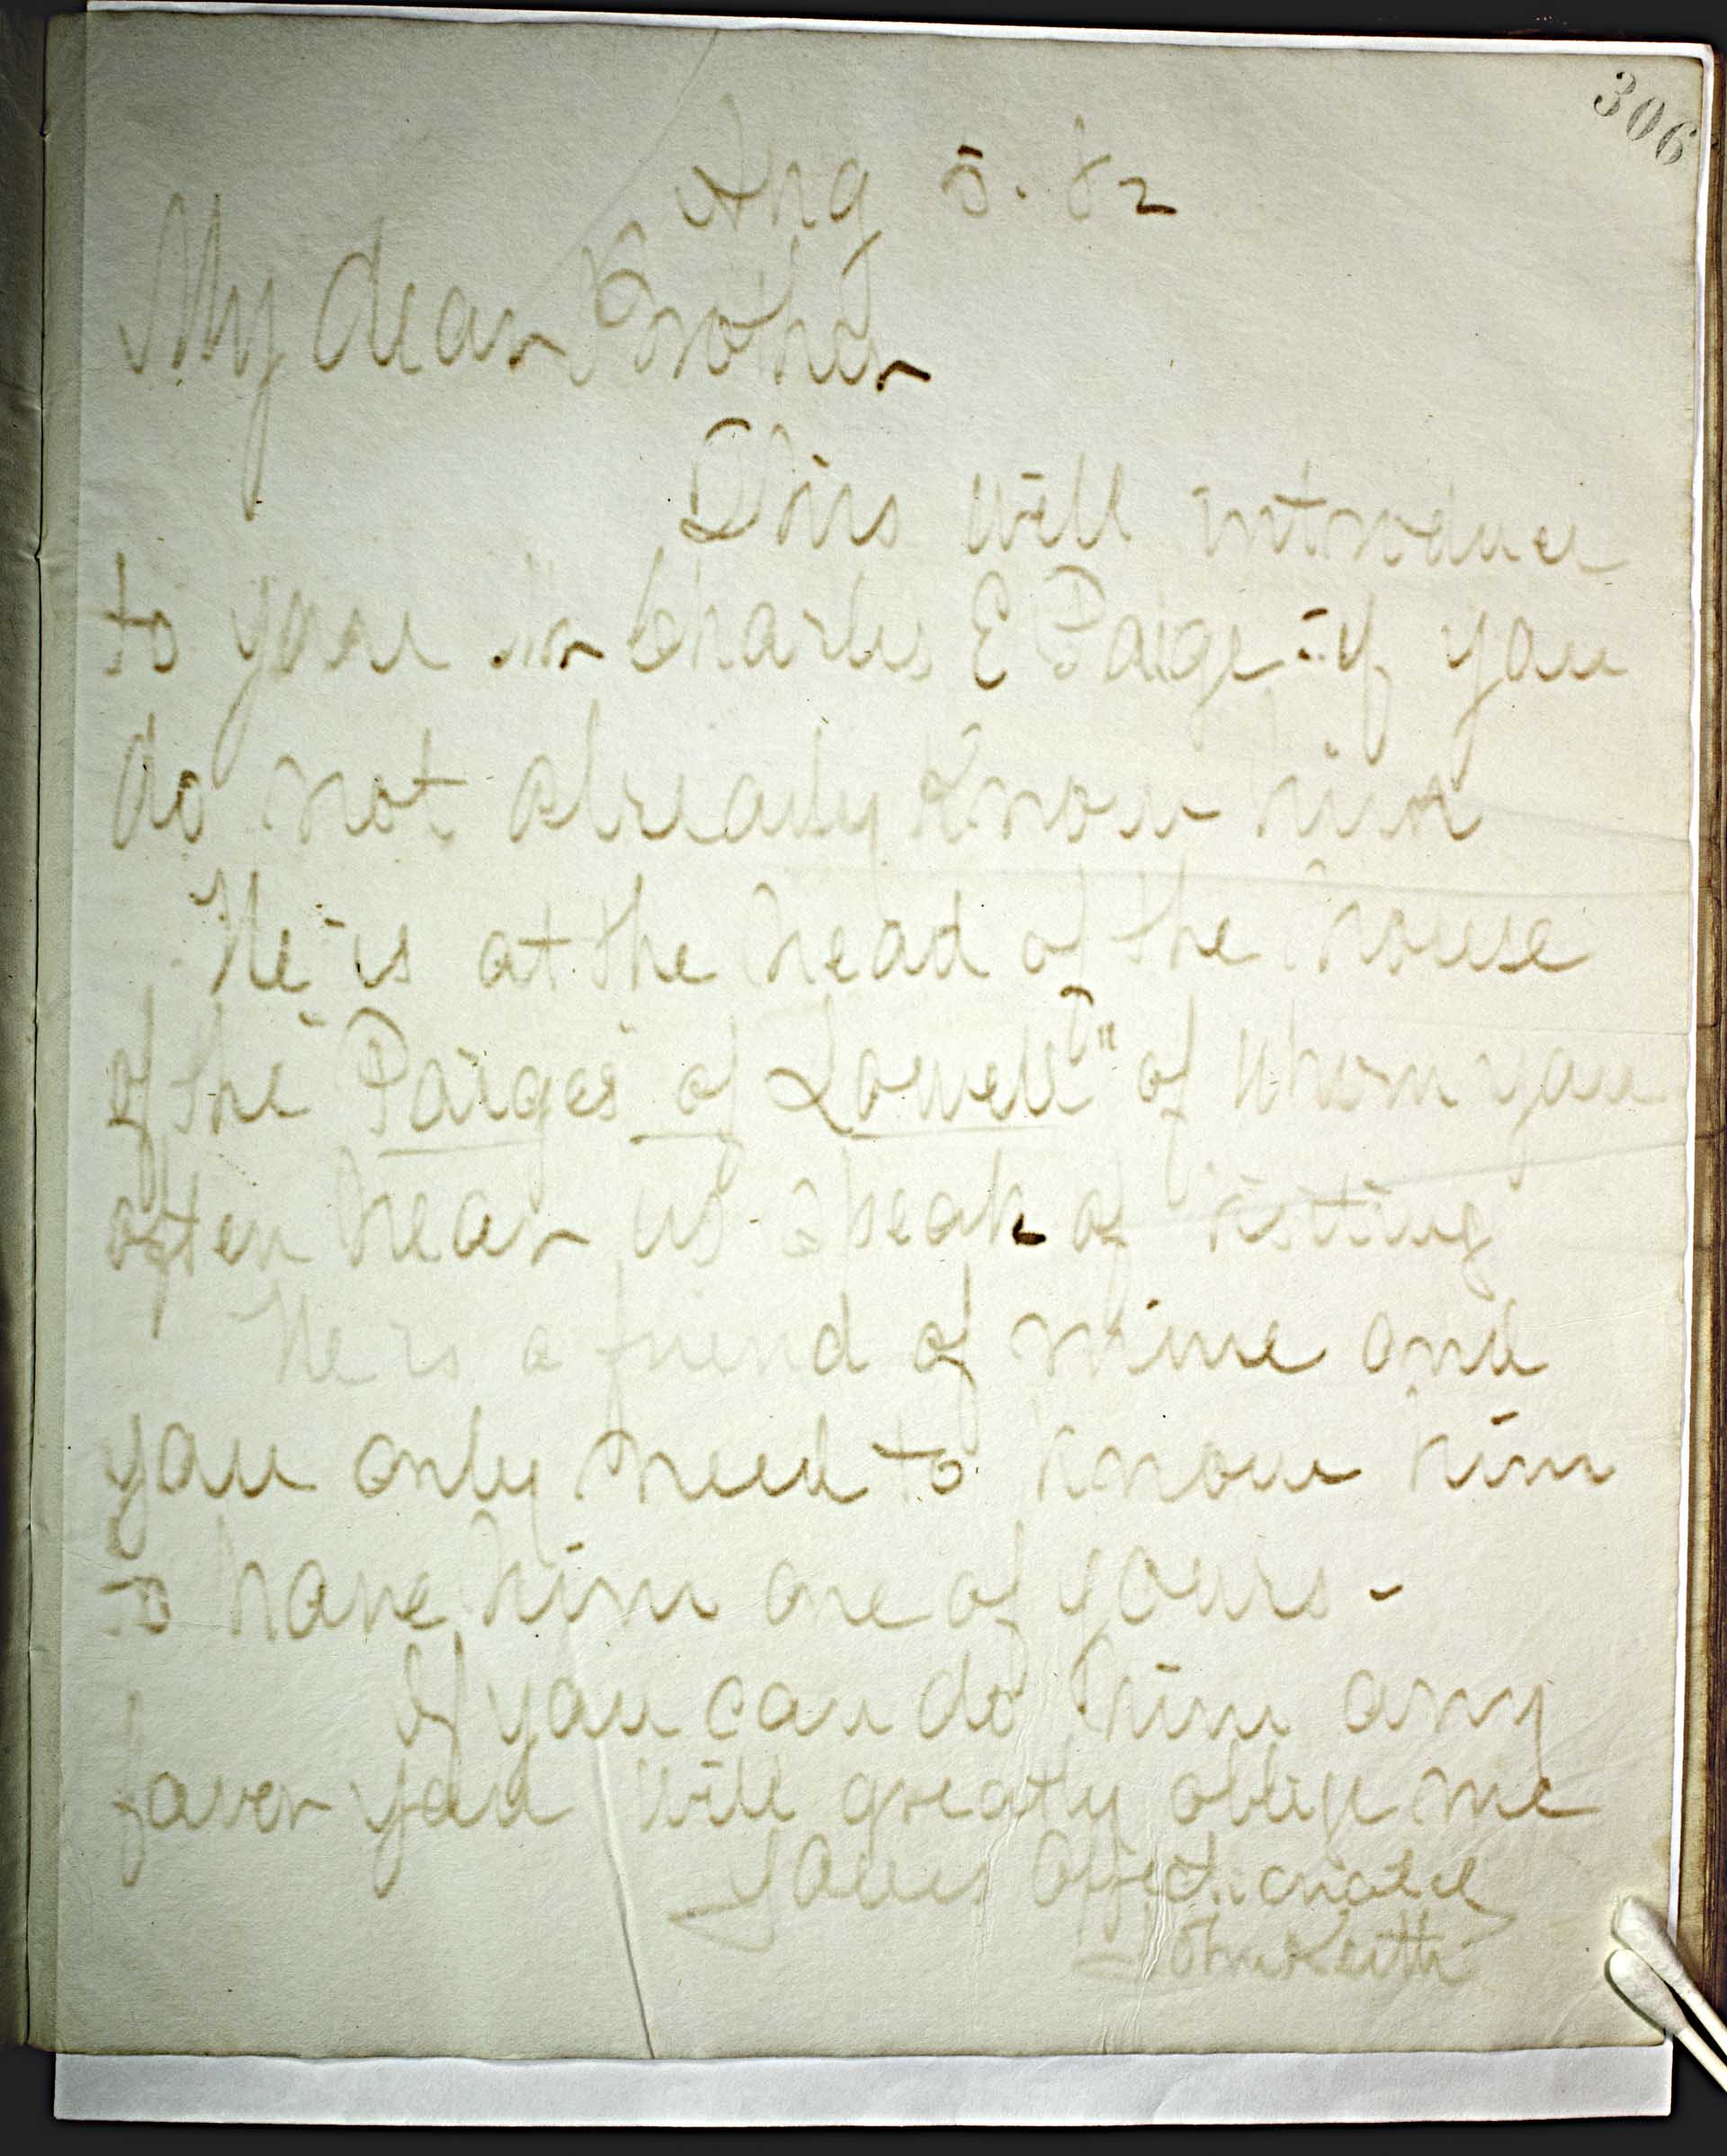 306
Aug 5. 82
My dear Brother
This will introduce
to you Mr Charles E Paige - if you
do not already know him
He is at the head of the house
of the "Paiges of Lowell" of whom you
often hear us speak of visiting
He is a friend of mine and
you only need to know him
to have him one of yours -
If you can do him any
favor you will greatly oblige me
Yours Affectionately
John Keith